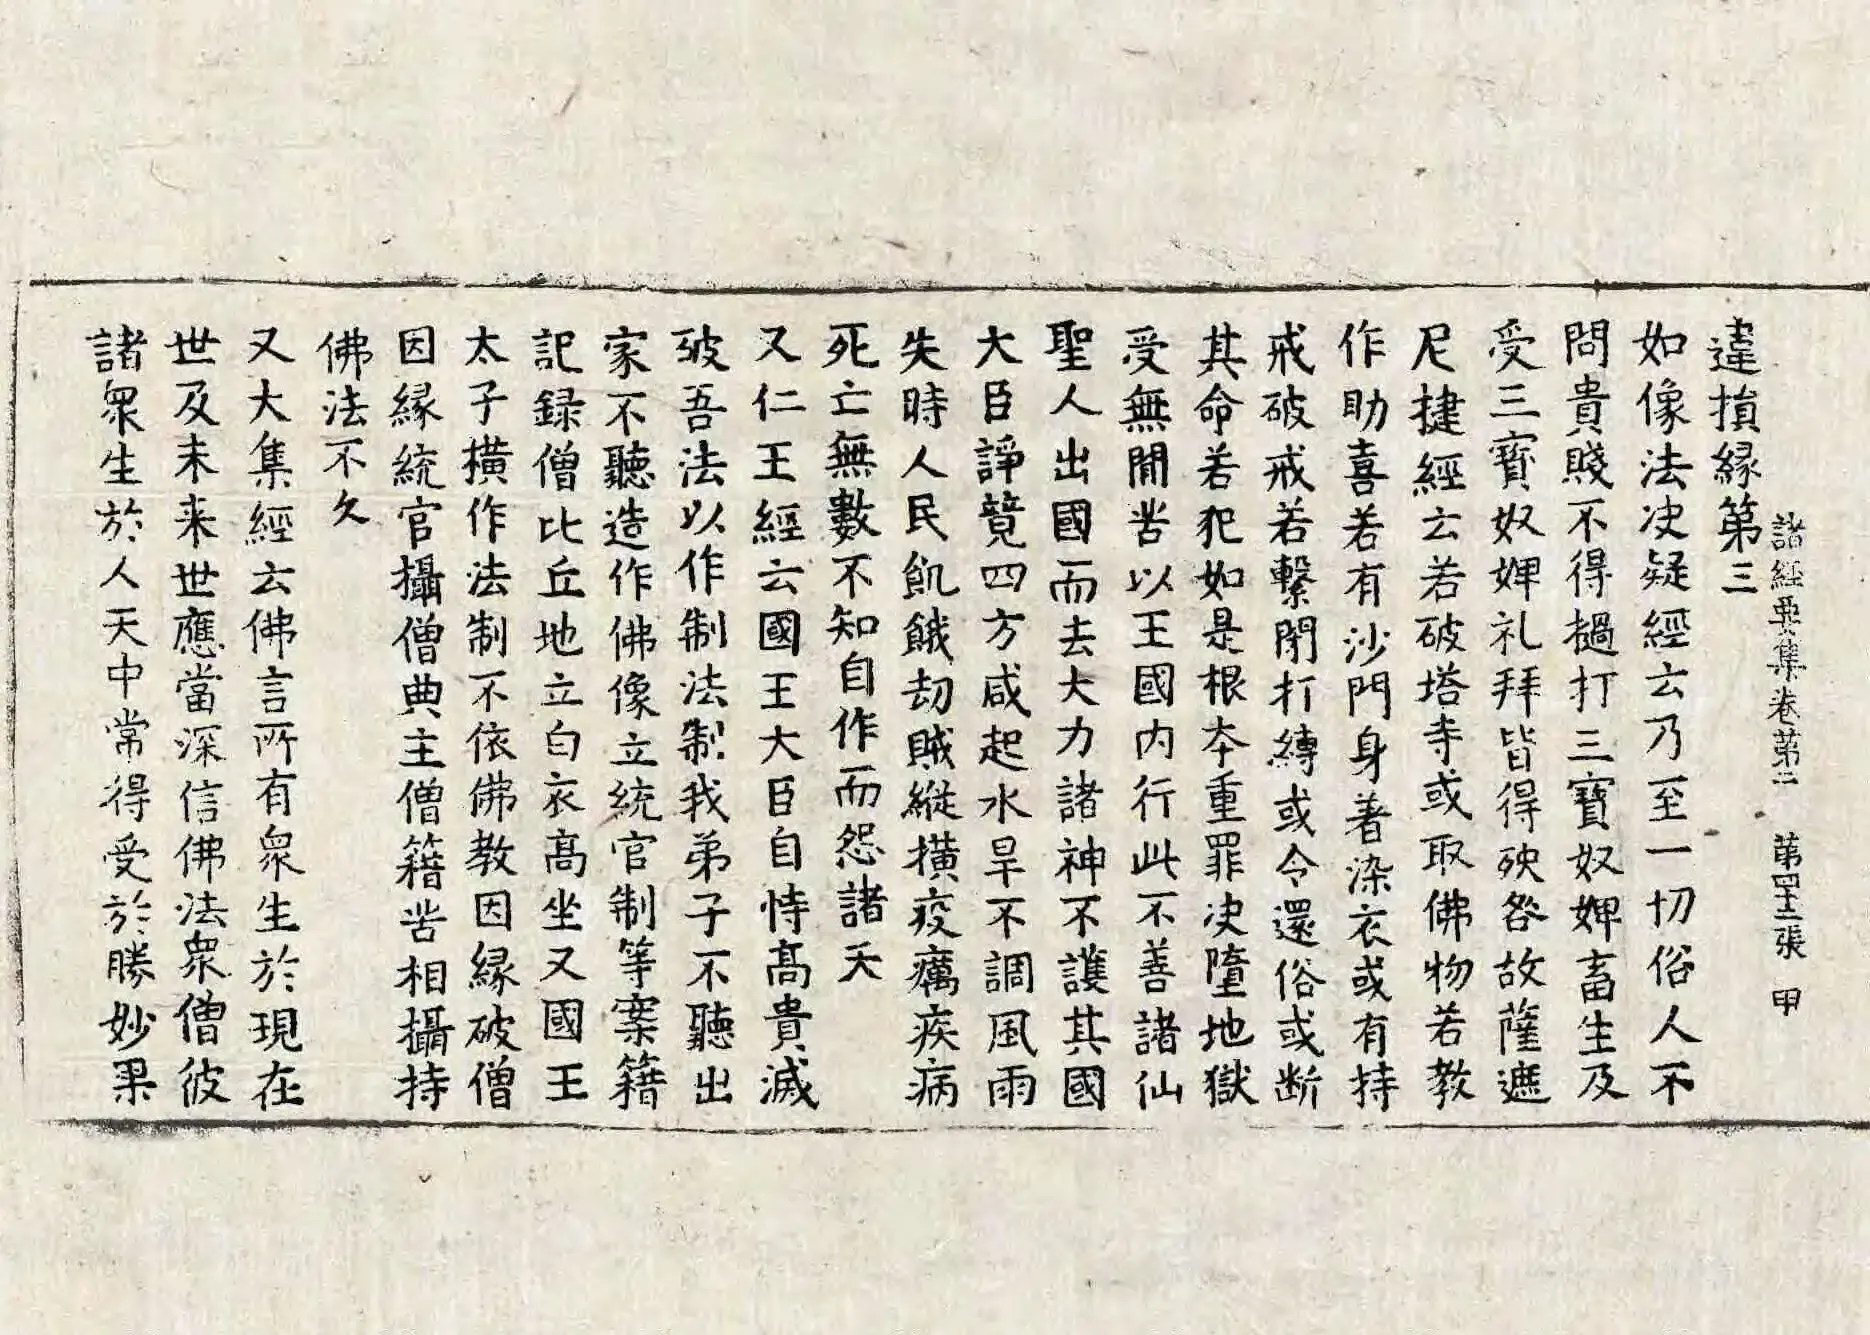 諸經要集卷第二 第四十二張 甲
違損縁第三
如像法决疑經云乃至一切俗人不
問貴賤不得撾打三寳奴婢畜生及
受三寳奴婢礼拜皆得殃咎故薩遮
尼揵經云若破塔寺或取佛物若教
作助喜若有沙門身著染衣或有持
戒破戒若繫閉打縛或令還俗或断
其命若犯如是根夲重罪决墮地獄
受無閒苦以王國内行此不善諸仙
聖人出國而去大力諸神不護其國
大臣諍競四方咸起水旱不調風雨
失時人民飢餓劫賊縱橫疫癘疾病
死亡無數不知自作而怨諸天
又仁王經云國王大臣自恃髙貴滅
破吾法以作制法制我弟子不聽出
家不聽造作佛像立統官制等案籍
記録僧比丘地立白衣髙坐又國王
太子橫作法制不依佛教因縁破僧
因縁統官攝僧典主僧籍苦相攝持
佛法不久
又大集經云佛言所有衆生於現在
世及未来世應當深信佛法衆僧彼
諸衆生於人天中常得受於勝妙果